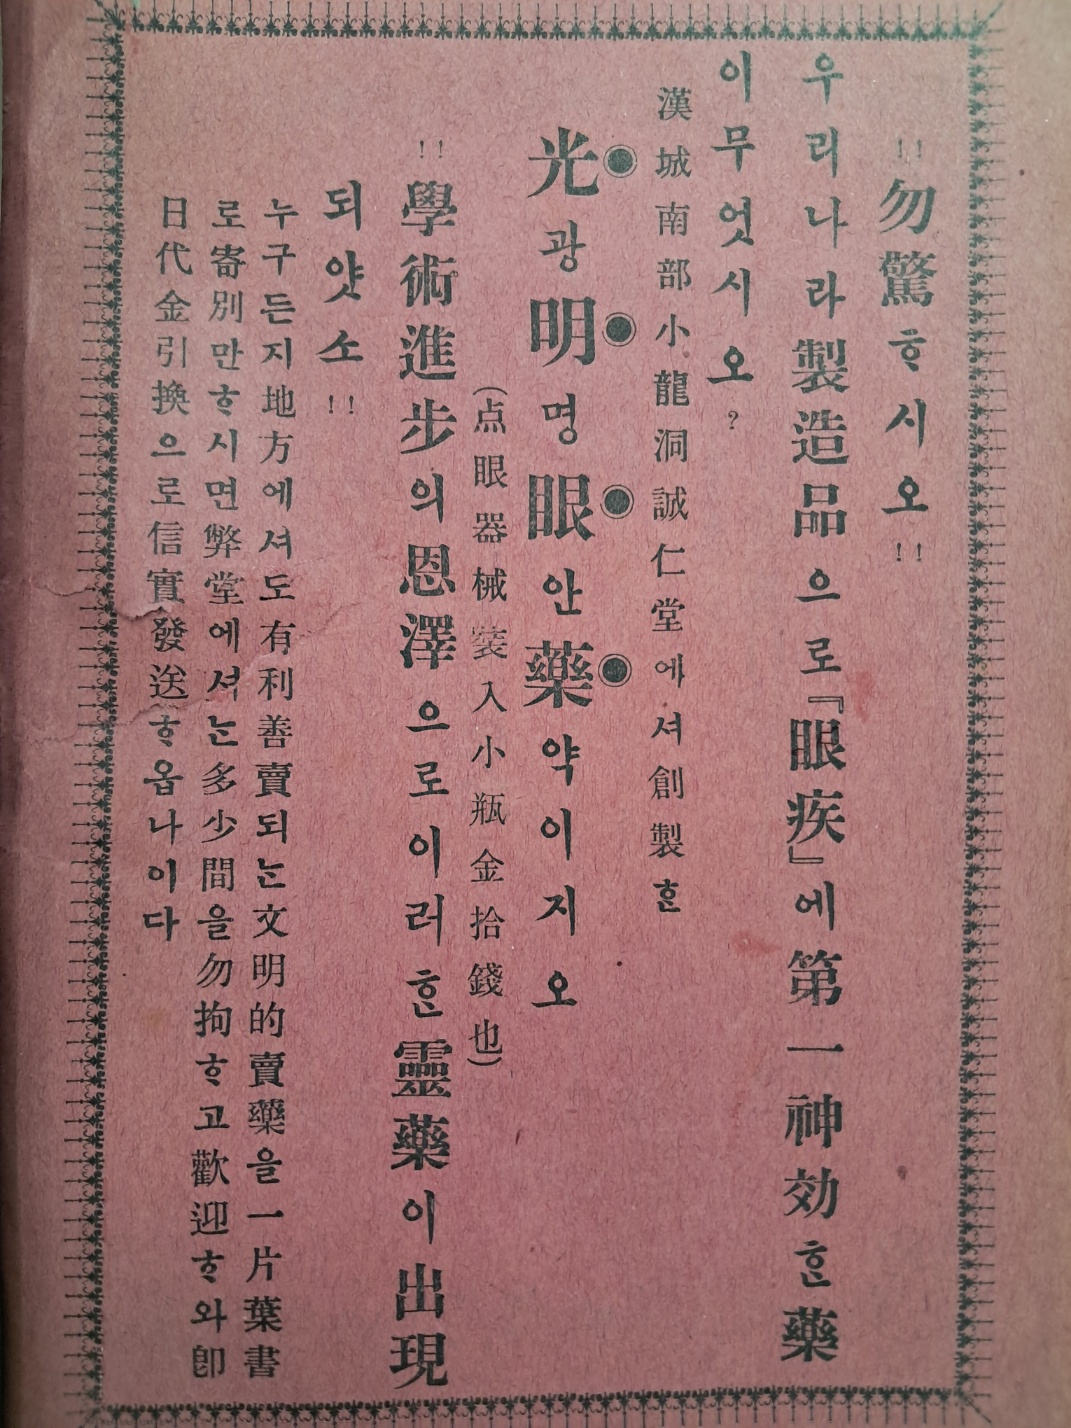 !!勿驚ᄒᆞ시오!!
우리나라製造品으로『眼疾』에第一神効ᄒᆞᆫ藥
이무엇시오?
漢城南部小龍洞誠仁堂에셔創製ᄒᆞᆫ
光광明명眼안藥약이지오
(点眼器械裝入小瓶金拾錢也)
!!學術進步의恩澤으로이러ᄒᆞᆫ靈藥이出現
되얏소!!
누구든지地方에셔도有利善賣되ᄂᆞᆫ文明的賣藥을一片葉書
로寄別만ᄒᆞ시면弊堂에셔ᄂᆞᆫ多少間을勿拘ᄒᆞ고歡迎ᄒᆞ와卽
日代金引換으로信實發送ᄒᆞ옵나이다